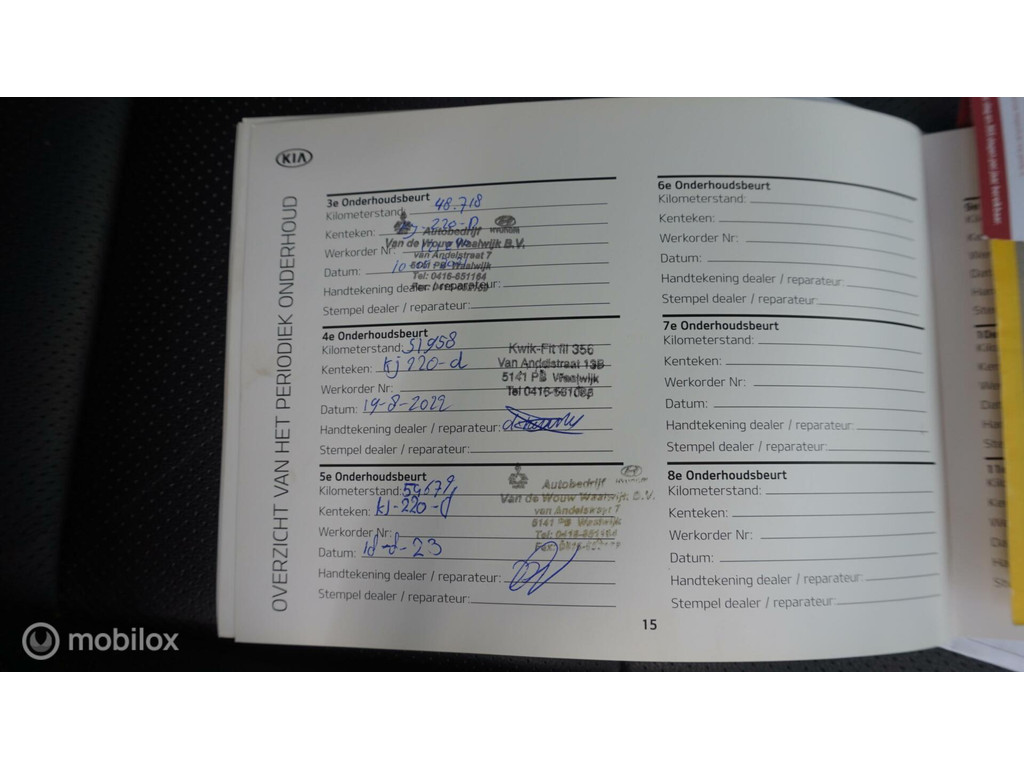 KIA
OVERZICHT VAN HET PERIODIEK ONDERHOUD
3e Onderhoudsbeurt
Kilometerstand: 48.718
Kenteken:
Autobedrijf HYUNDAI
Werkorder Nr:
Van de Wouw Waalwijk B.V.
van Andelstraat 7
Datum: 10
5141 PB Waalwijk
Tel: 0416-651164
Handtekening dealer / reparateur:
Stempel dealer / reparateur:
4e Onderhoudsbeurt
Kilometerstand: 51958
Kwik-Fit fil 356
Kenteken: kj 220-d
Van Andelstraat 13B
5141 PB Waalwijk
Werkorder Nr:
Datum: 19-8-2022
Handtekening dealer / reparateur:
Stempel dealer / reparateur:
5e Onderhoudsbeurt
Kilometerstand:
Autobedrijf
Van de Wouw Waalwijk B.V.
Kenteken: KJ-220-d
van Andelstraat 7
5141 PB Waalwijk
Werkorder Nr:
Tel: 0416-651164
Datum:
Handtekening dealer / reparateur:
Stempel dealer / reparateur:
6e Onderhoudsbeurt
Kilometerstand:
Kenteken:
Werkorder Nr:
Datum:
Handtekening dealer / reparateur:
Stempel dealer / reparateur:
7e Onderhoudsbeurt
Kilometerstand:
Kenteken:
Werkorder Nr:
Datum:
Handtekening dealer / reparateur:
Stempel dealer / reparateur:
8e Onderhoudsbeurt
Kilometerstand:
Kenteken:
Werkorder Nr:
Datum:
Handtekening dealer / reparateur:
Stempel dealer / reparateur:
15
mobilox